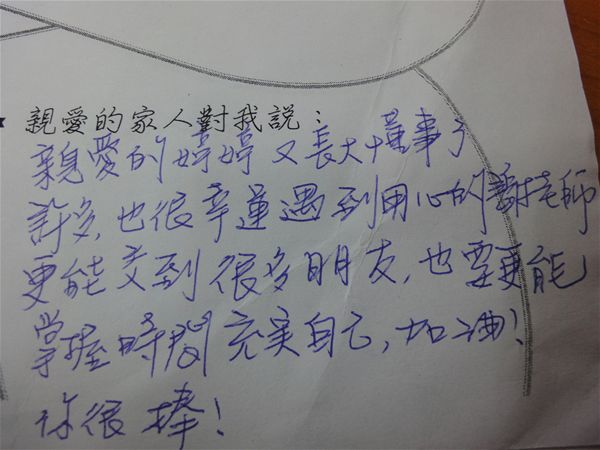 親愛的家人對我說：
親愛的婷婷又長大懂事了
許多，也很幸運遇到用心的謝老師
更能交到很多朋友，也要更能
掌握時間充実自己，加油！
妳很棒！